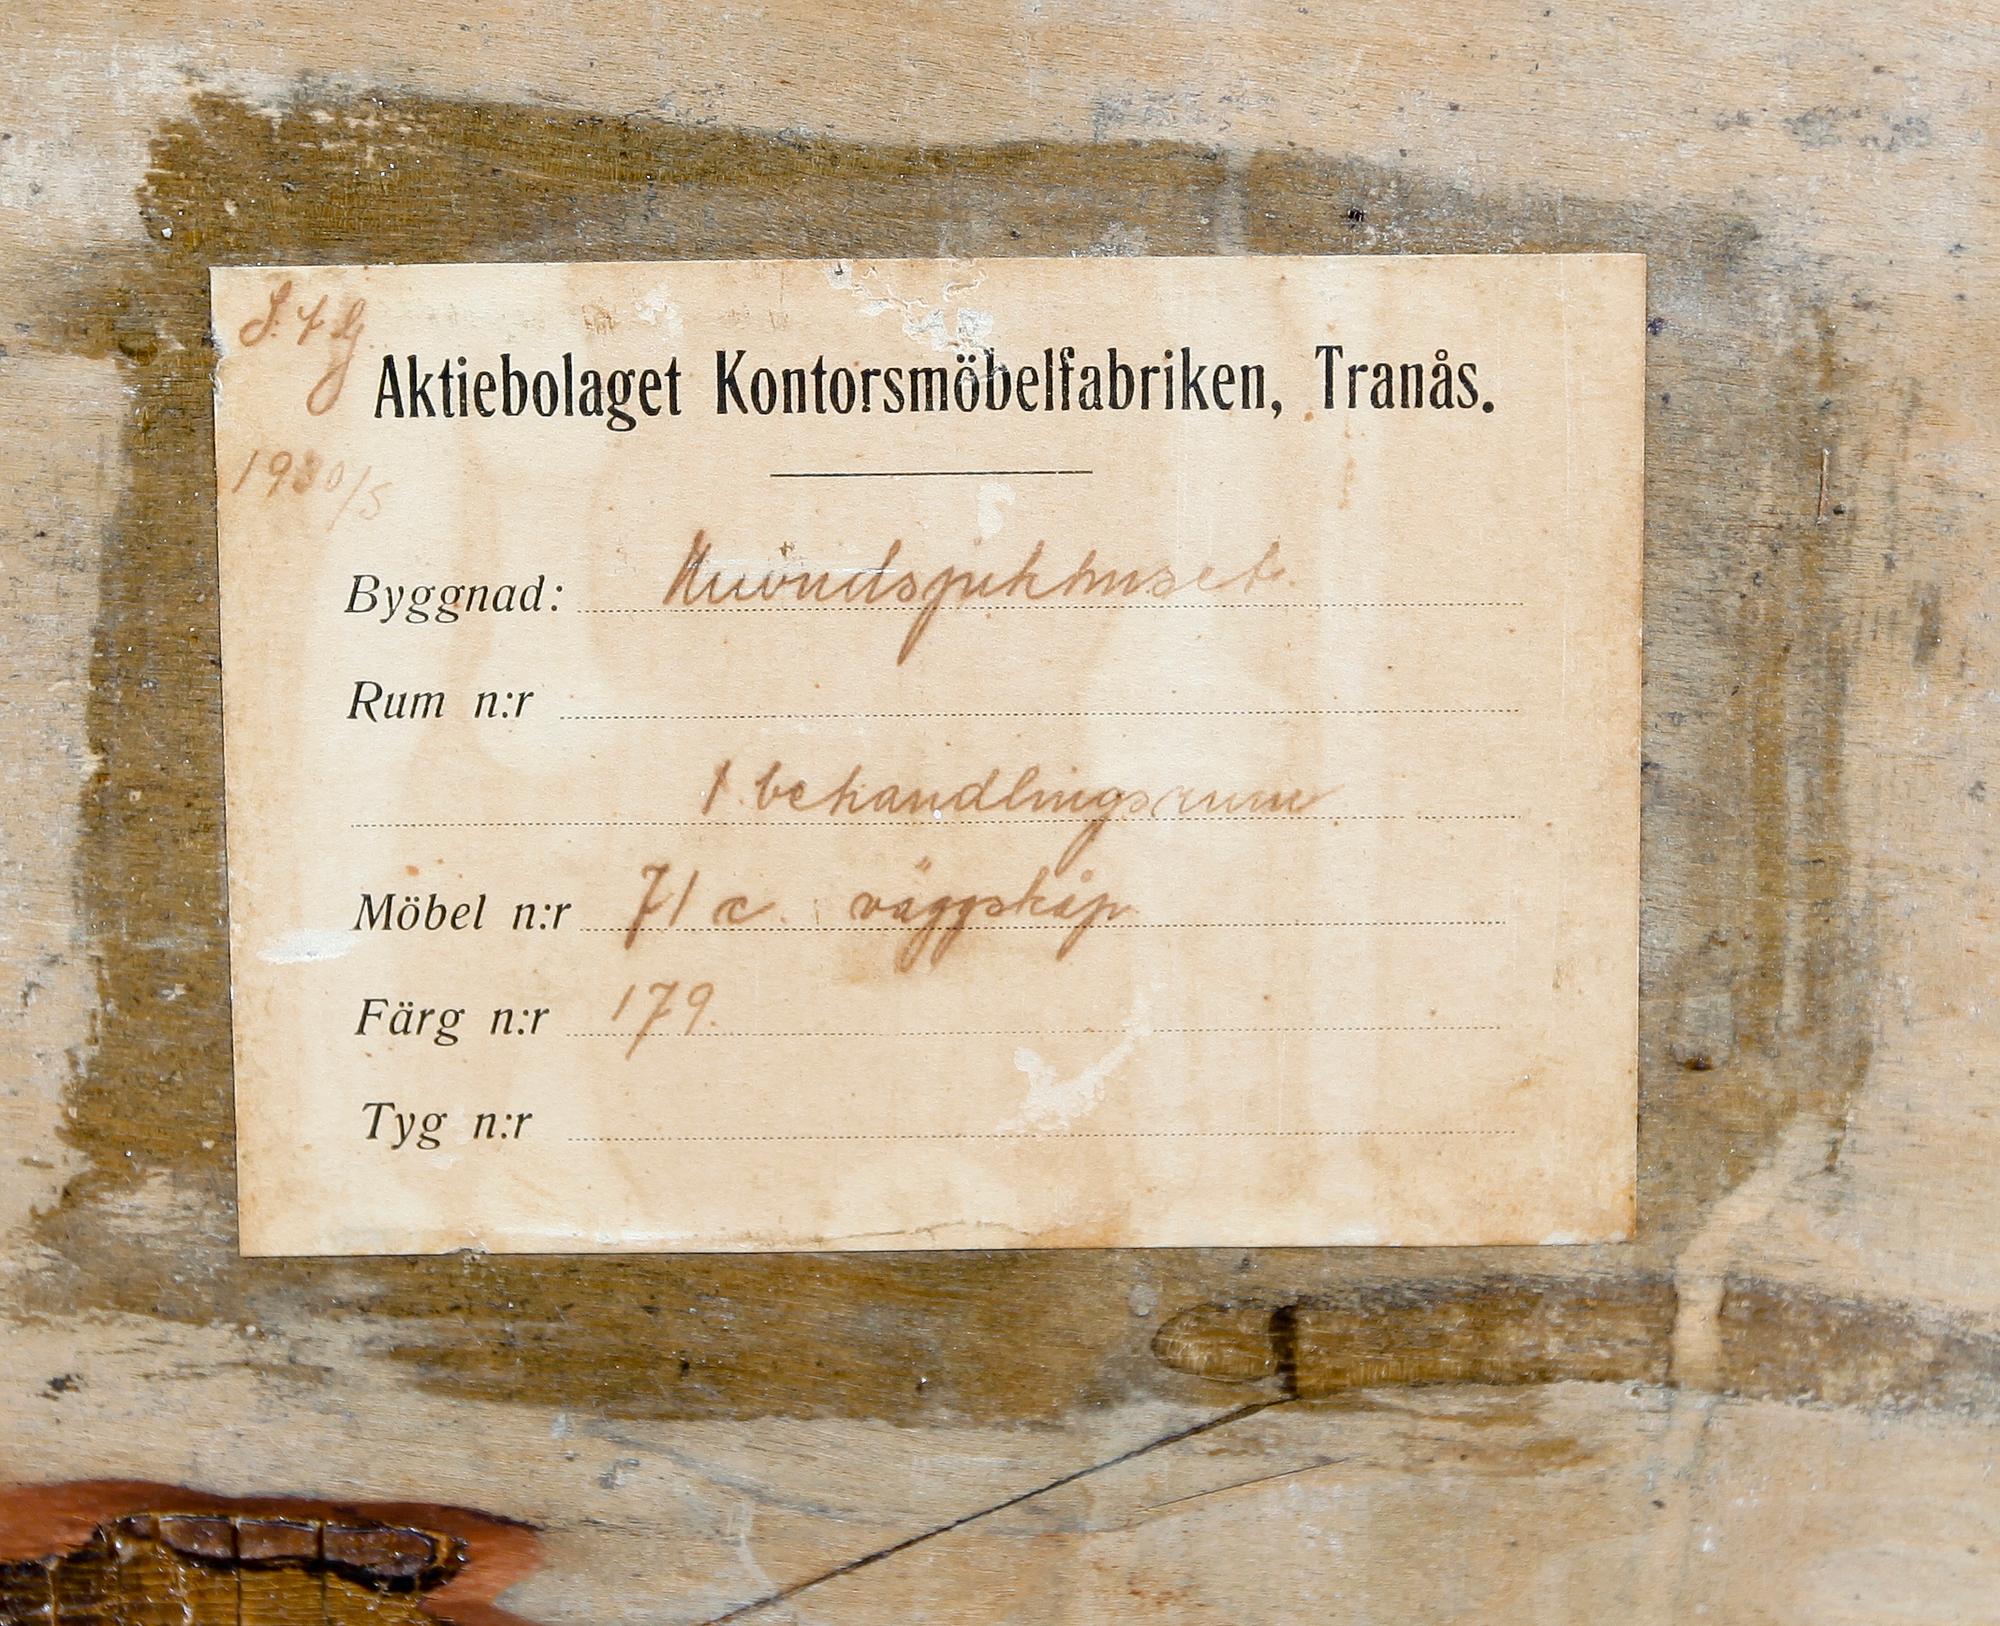 Aktiebolaget Kontorsmöbelfabriken, Tranås.
1930/5
Byggnad:
Rum n:r
1 behandlingsrum
Möbel n:r 71 c. väggskåp
Färg n:r 179.
Tyg n:r